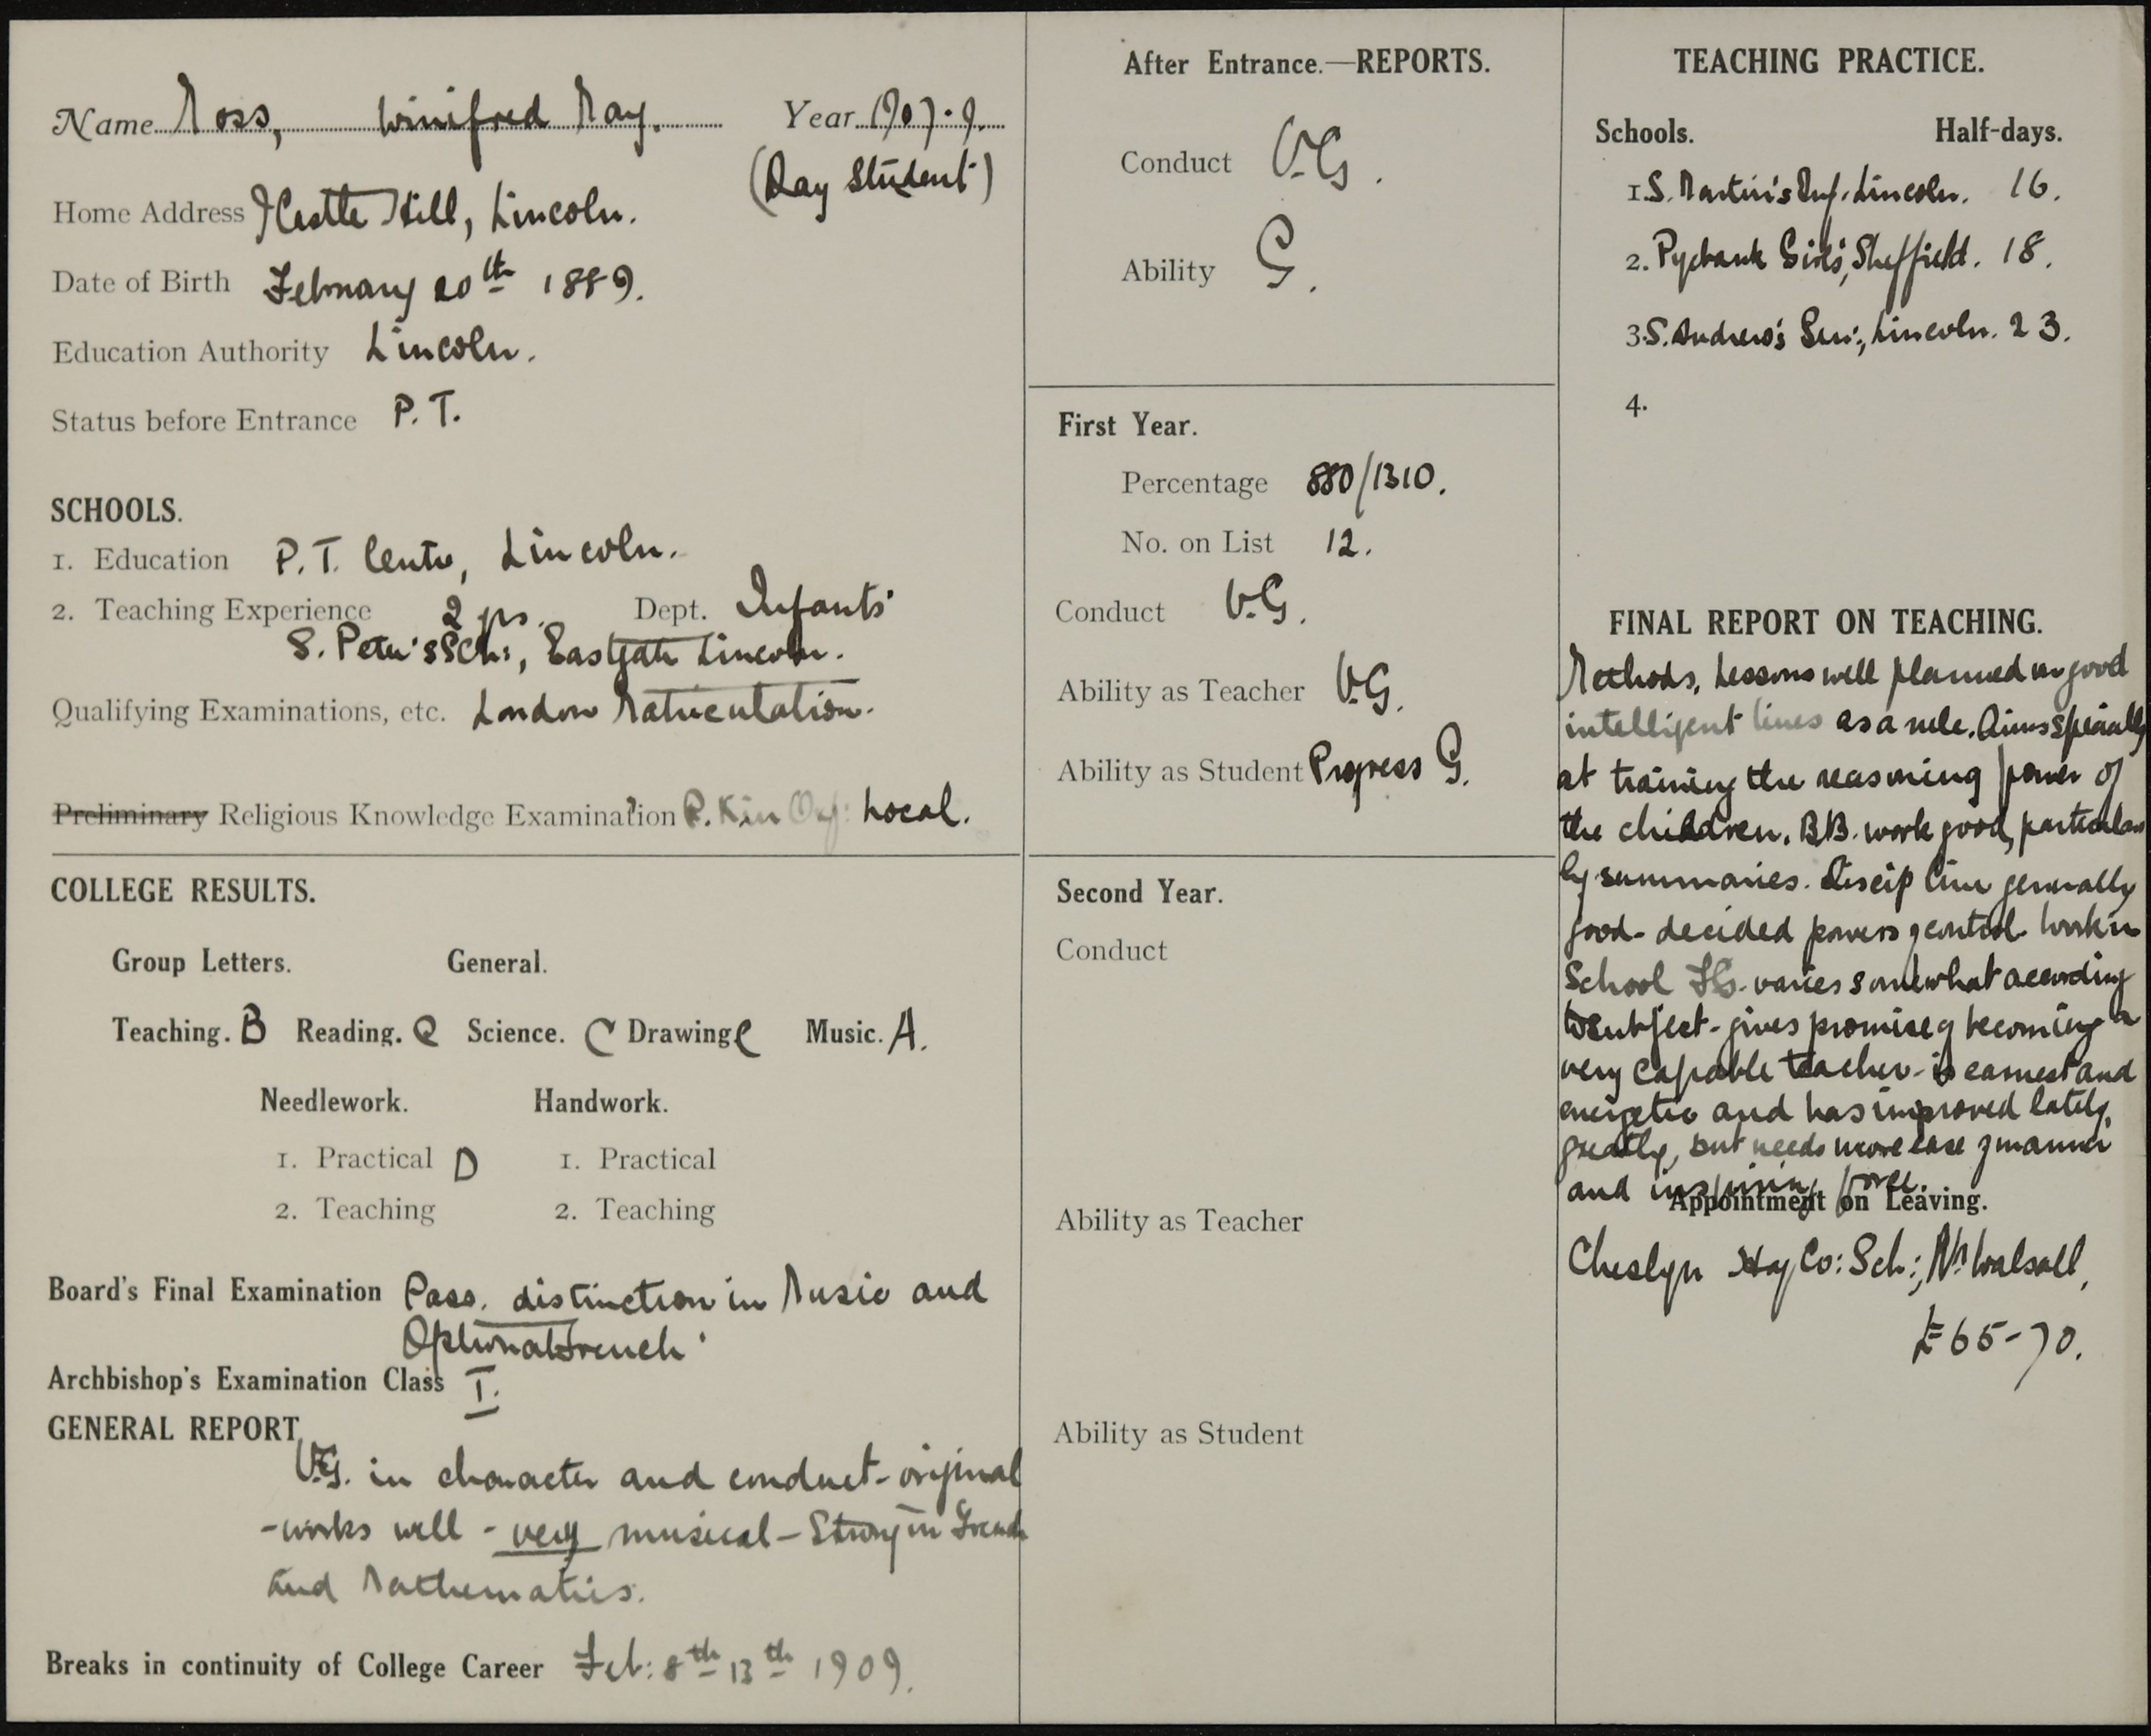 Name Moss, Winifred May. Year 1907-9.
(Day Student)
Home Address 7 Castle Hill, Lincoln.
Date of Birth February 20th 1889.
Education Authority Lincoln.
Status before Entrance P.T.
SCHOOLS.
1. Education P.T. Centre, Lincoln.
2. Teaching Experience 2 yrs. Dept. Infants'
S. Peter's Sch:, Eastgate Lincoln.
Qualifying Examinations, etc. London Matriculation.
Preliminary Religious Knowledge Examination R. K. in Oxf: Local.
COLLEGE RESULTS.
Group Letters. General.
Teaching. B Reading. C Science. C Drawing C Music. A.
Needlework. Handwork.
1. Practical D 1. Practical
2. Teaching 2. Teaching
Board's Final Examination Pass. distinction in Music and
Optional French.
Archbishop's Examination Class I.
GENERAL REPORT
V.G. in character and conduct - original
- works well - very musical - Strong in French
and Mathematics.
Breaks in continuity of College Career Feb: 8th 13th 1909.
After Entrance.—REPORTS.
Conduct V.G.
Ability G.
First Year.
Percentage 880/1310.
No. on List 12.
Conduct V.G.
Ability as Teacher V.G.
Ability as Student Progress G.
Second Year.
Conduct
Ability as Teacher
Ability as Student
TEACHING PRACTICE.
Schools. Half-days.
1. S. Martin's Inf. Lincoln. 16.
2. Pyebank Girls', Sheffield. 18.
3. S. Andrew's Sen:, Lincoln. 23.
4.
FINAL REPORT ON TEACHING.
Methods, Lessons well planned on good
intelligent lines as a rule. Aims specially
at training the reasoning power of
the children. B.B. work good, particular-
ly summaries. Discipline generally
good - decided powers of control. Work in
School F.G. varies somewhat according
to subject - gives promise of becoming a
very capable teacher - is earnest and
energetic and has improved lately,
greatly, but needs more ease of manner
and inspiring force.
Appointment on Leaving.
Cheslyn Hay Co: Sch:, Nr. Walsall,
£65-70.